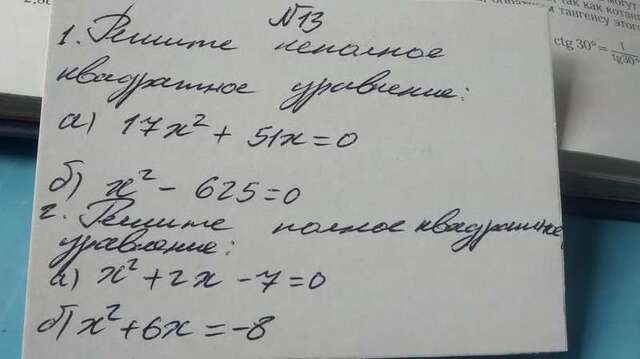 №13
1. Решите неполное
квадратное уравнение:
а) 17x² + 51x = 0
б) x² - 625 = 0
2. Решите полное квадратное
уравнение:
а) x² + 2x - 7 = 0
б) x² + 6x = -8
так как котан
тангенсу этого
ctg 30° = 1/tg30°